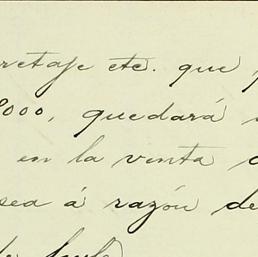 rretaje etc. que
2000, quedará
en la venta
sea á razón de